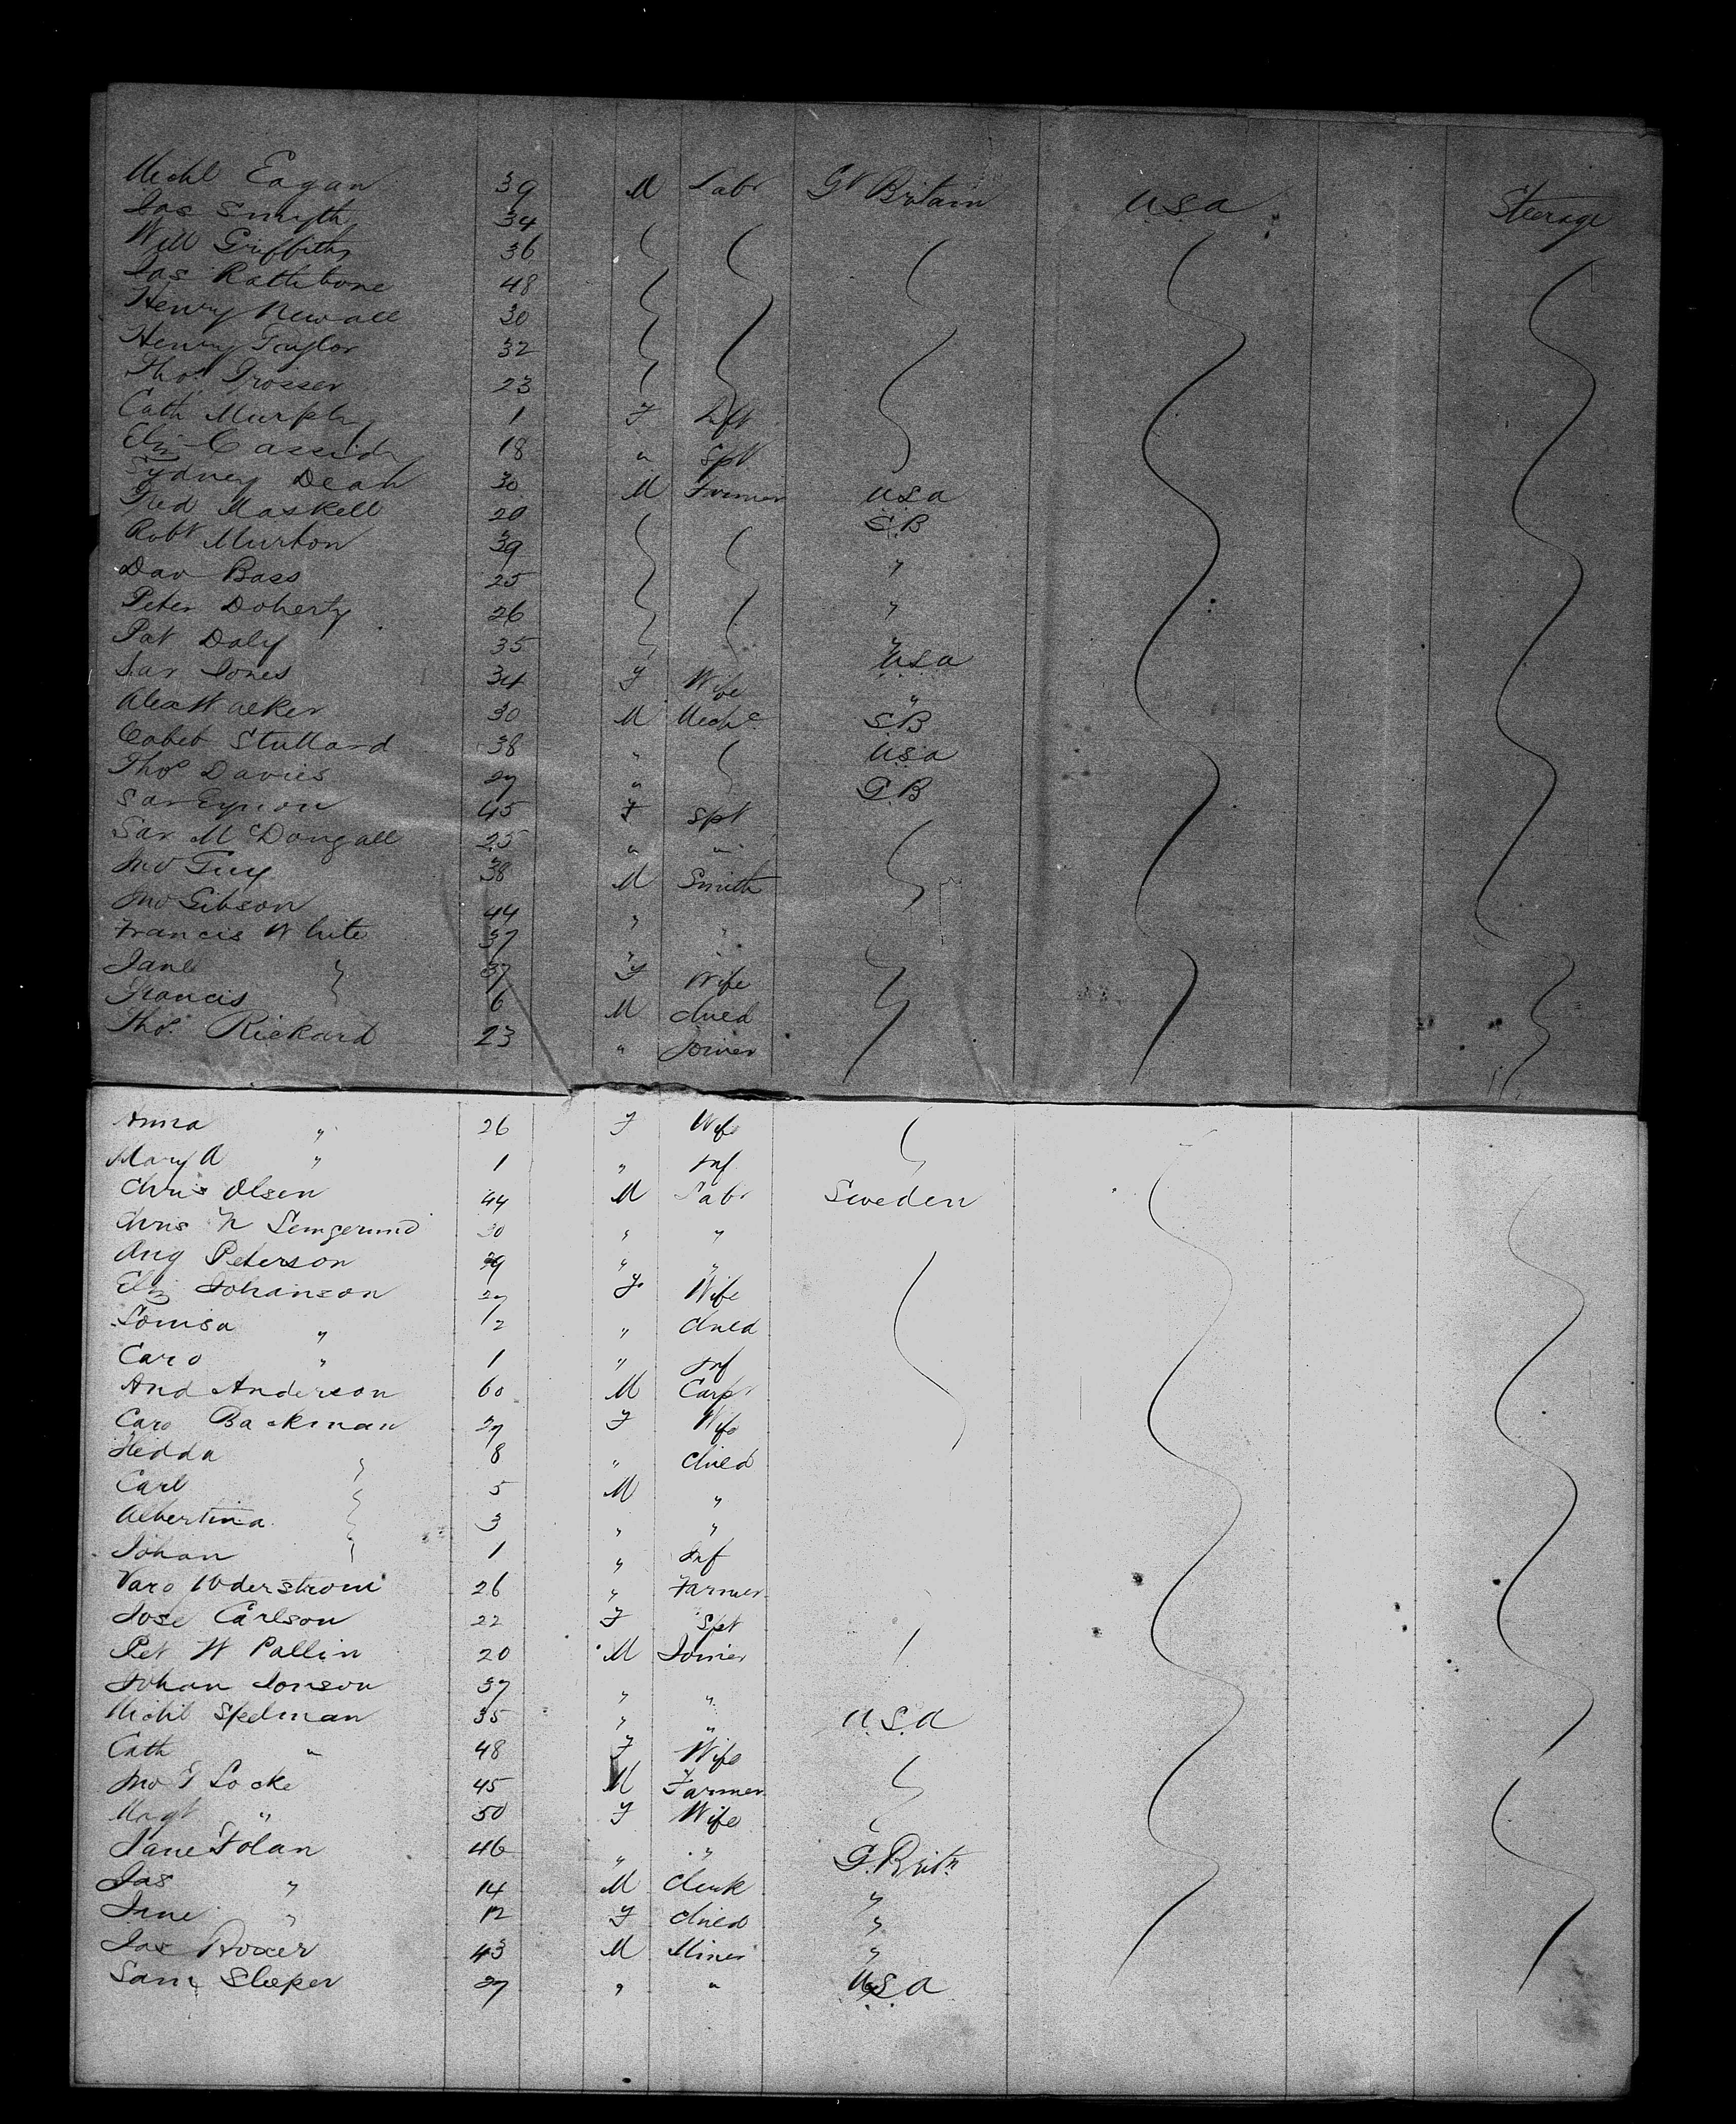 Michl Eagan 39 M Labr Gt Britain U.S.A Steerage
Jas Smyth 34
Will Griffiths 36
Jas Rathbone 48
Henry Newall 30
Henry Taylor 32
Thos Prosser 23
Cath Murphy 1 F Inft
Eliz Cassidy 18 " Spt
Sydney Deah 30 M Farmer U.S.A
Fred Maskell 20 G.B
Robt Murton 39 "
Dav Bass 25 "
Peter Doherty 26 "
Pat Daly 35 U.S.A
Sar Jones 34 F Wife "
Alex Walker 30 M Mechc G.B
Stullard 38 " U.S.A
Thos Davies 27 " G.B
Sar Eynon 45 F Spt
Sar McDougall 25 " "
Jno Guy 38 M Smith
Jno Gibson 44 " "
Francis White 37 " "
Jane " 37 F Wife
Francis 6 M Child
Thos Rickard 23 " Joiner
Anna " 26 F Wife
Mary A " 1 " Inf
Chris Olsen 44 M Labr Sweden
Chris N 30 " "
Aug Peterson 29 " "
Eliz Johanson 27 F Wife
Louisa " 12 " Child
Caro " 1 " Inf
And Anderson 60 M Carpr
Caro Backman 27 F Wife
Hedda " 8 " Child
Carl 5 M "
Albertina 3 " "
Johan 1 " Inf
26 " Farmer
Jose Carlson 22 F Spt
Pet W Pallin 20 M Joiner
Johan Jonson 37 " "
Michl Spelman 35 " " U.S.A
Cath " 48 F Wife
Jno T Locke 45 M Farmer
Margt " 50 F Wife
Jane Folan 46 " " G. Britn
Jas " 14 M Clerk "
Jane " 12 F Child "
Jas 43 M Miner "
Saml Sleeper 27 " " U.S.A